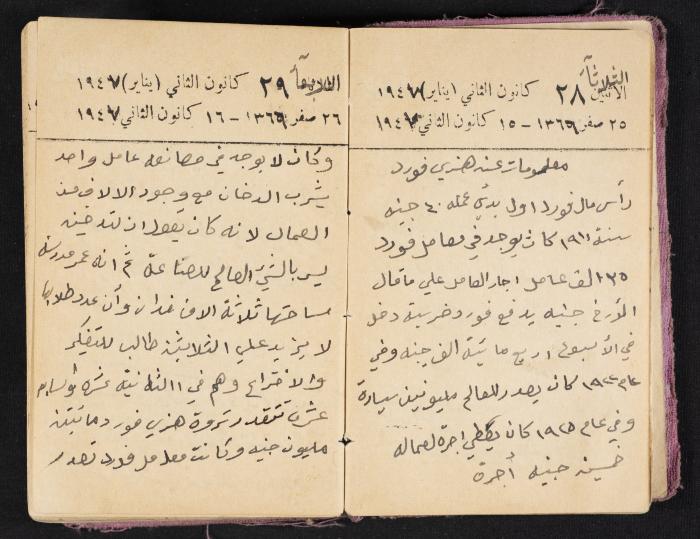 الثلاثاء
الاثنين ٢٨ كانون الثاني (يناير) ١٩٤٧
٢٥ صفر ١٣٦٥ – ١٥ كانون الثاني ١٩٤٧
معلومات عند هنري فورد
رأس مال فورد اول بدئ عمله ٤٠ جنيه
سنة ١٩١١ كان يوجد في معامل فورد
١٣٥ الف عامل اجار العامل علي ما قال
المؤرخ جنيه يدفع فورد ضريبة دخل
في الأسبوع اربع مائة الف جنيه وفي
عام ١٩٢٣ كان يصدر للعالم مليونين سيارة
وفي عام ١٩٢٥ كان يعطي اجرة لعماله
خمسين جنيه أجرة
الاربعاء ٢٩ كانون الثاني (يناير) ١٩٤٧
٢٦ صفر ١٣٦٥ – ١٦ كانون الثاني ١٩٤٧
وكان لا يوجد في مصانعه عامل واحد
يشرب الدخان مع وجود الالاف من
العمال لانه كان يقول ان لتدخين
ليس بالشيئ الصالح للصناعة ثم انه عمر مدرسة
مساحتها ثلاثة الاف فدان وأن عدد طلابها
لا يزيد علي الثلاثين طالب للتفكير
والاختراع وهم في الثانية عشر
عشرة تقدر ثروة هنري فورد مائتين
مليون جنيه وكانت معامل فورد تصدر